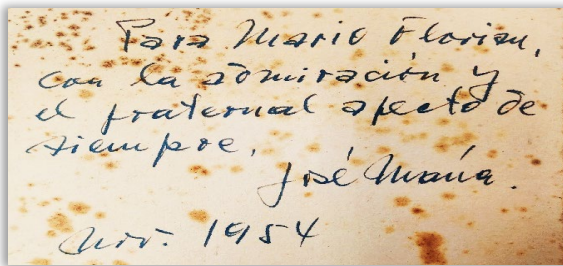 Para Mario Florian,
con la admiración y
el fraternal afecto de
siempre,
José María.
Nov. 1954